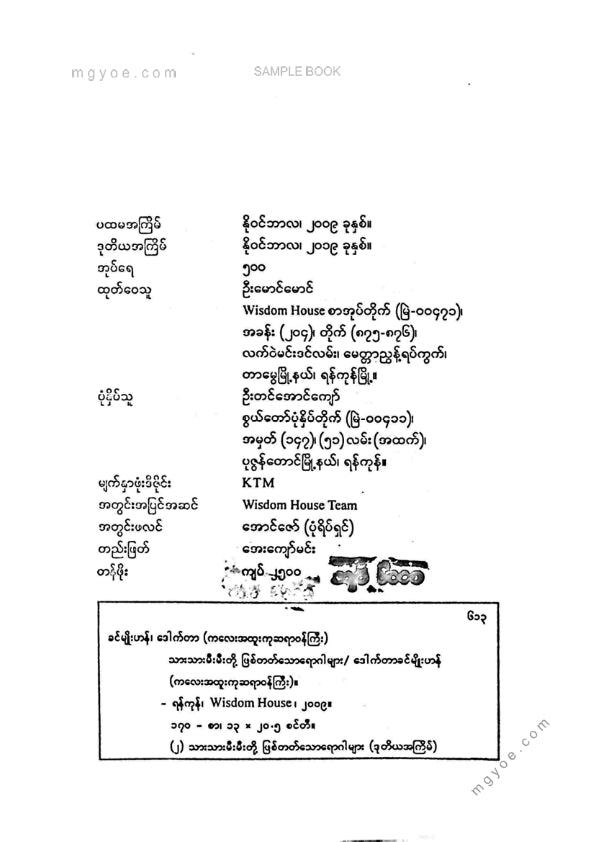 mgyoe.com SAMPLE BOOK
ပထမအကြိမ် နိုဝင်ဘာလ၊ ၂၀၀၉ ခုနှစ်။
ဒုတိယအကြိမ် နိုဝင်ဘာလ၊ ၂၀၁၉ ခုနှစ်။
အုပ်ရေ ၅၀၀
ထုတ်ဝေသူ ဦးမောင်မောင်
Wisdom House စာအုပ်တိုက် (မြဲ-၀၀၄၇၁)၊
အခန်း (၂၀၄)၊ တိုက် (၈၇၅-၈၇၆)၊
လက်ဝဲမင်းဒင်လမ်း၊ မေတ္တာညွန့်ရပ်ကွက်၊
တာမွေမြို့နယ်၊ ရန်ကုန်မြို့။
ပုံနှိပ်သူ ဦးတင်အောင်ကျော်
စွယ်တော်ပုံနှိပ်တိုက် (မြဲ-၀၀၄၁၁)၊
အမှတ် (၁၄၇)၊ (၅၁) လမ်း (အထက်)၊
ပုဇွန်တောင်မြို့နယ်၊ ရန်ကုန်။
မျက်နှာဖုံးဒီဇိုင်း KTM
အတွင်းအပြင်အဆင် Wisdom House Team
အတွင်းဖလင် အောင်ဇော် (ပုံရိပ်ရှင်)
တည်းဖြတ် အေးကျော်မင်း
တန်ဖိုး ကျပ် ၂၅၀၀
၆၁၃
ခင်မျိုးဟန်၊ ဒေါက်တာ (ကလေးအထူးကုဆရာဝန်ကြီး)
သားသားမီးမီးတို့ ဖြစ်တတ်သောရောဂါများ/ ဒေါက်တာခင်မျိုးဟန်
(ကလေးအထူးကုဆရာဝန်ကြီး)။
- ရန်ကုန်၊ Wisdom House ၊ ၂၀၀၉။
၁၇၀ - စာ၊ ၁၃ × ၂၀.၅ စင်တီ။
(၂) သားသားမီးမီးတို့ ဖြစ်တတ်သောရောဂါများ (ဒုတိယအကြိမ်)
mgyoe.com